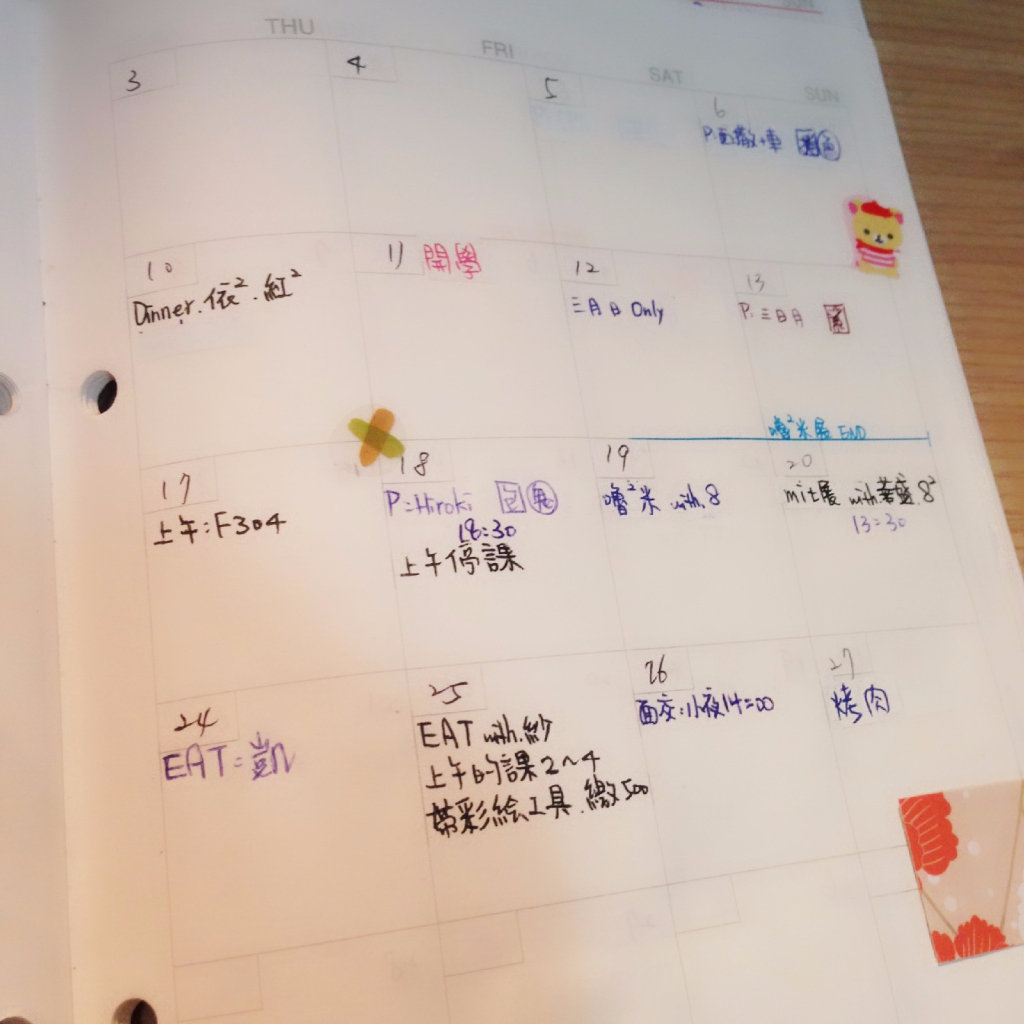 SUN
THU
FRI
SAT
SUN
3
4
5
6
P.面
10
Dinner.依².紅²
11 開學
12
三月日 Only
13
P: 三日月
嚕²米展 END
17
上午:F304
18
P:Hiroki 包
18:30
上午停課
19
嚕²米 with.8
20
mit展 with 8²
13:30
24
EAT:凱
25
EAT with.紗
上午的課2~4
帶彩絵工具.繳500
26
面交:小夜14:00
27
烤肉